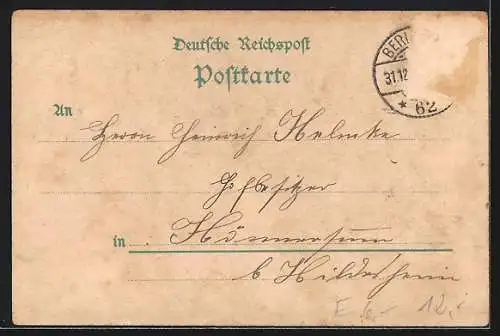 Deutsche Reichspost
Postkarte
BERL
31.12
* 62
An
Herrn Heinrich Helmke
Hofbesitzer
in Hönnersum
b Hildesheim
E 6,- 12,-